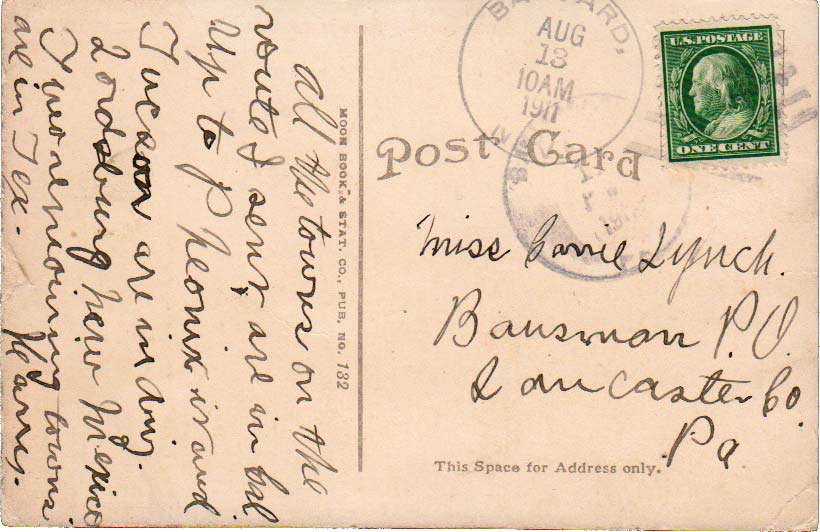 All the towns on the
route I sent are in Cal
up to Pheonix is and
Tucson are in Ariz.
Lordsburg New Mexico
remaining towns
are in Tex. Harry.
MOON BOOK & STAT. CO., PUB. NO. 132
AUG
13
10AM
1911
U.S. POSTAGE
ONE CENT
Post Card
Miss Carrie Lynch.
Bausman P.O.
Lancaster Co.
Pa
This Space for Address only.